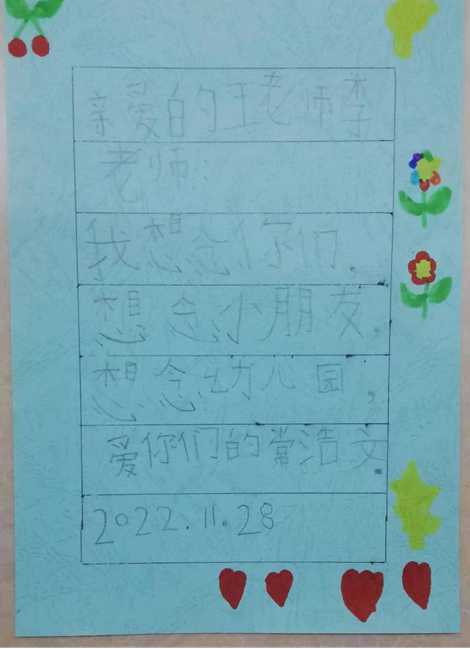 亲爱的王老师李
老师：
我想念你们，
想念小朋友，
想念幼儿园，
爱你们的常浩文
2022.11.28